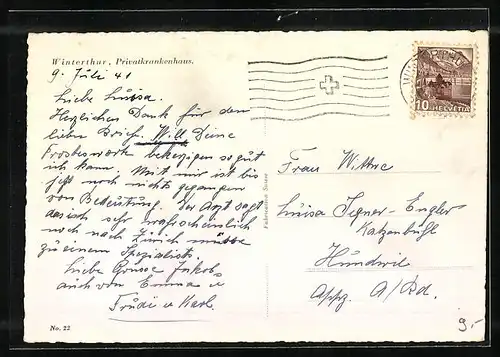 Winterthur, Privatkrankenhaus.
9. Juli 41
Liebe Luisa.
Herzlichen Dank für den
lieben Brief. Will Deine
Trostesworte beherzigen so gut
ich kann. Mit mir ist bis
jetzt noch nichts gegangen
von Bedeutung. Der Arzt sagt
dass ich sehr wahrscheinlich
noch nach Zürich müsse
zu einem Spezialist.
Liebe Grüsse Jakob
auch von Emma u
Trudi u Karl.
No. 22
10 HELVETIA
Frau Witwe
Luisa Engler
Hundwil
Appz. A/Rh.
9.-